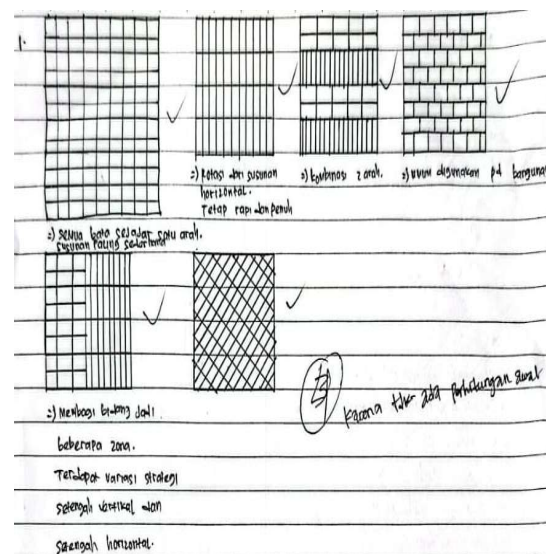 1.
=) Rotasi dari susunan
horizontal.
Tetap rapi dan penuh
=) kombinasi 2 arah.
=) umum digunakan pd bangunan
=) semua bata sejajar satu arah.
susunan paling sederhana
=) Membagi bidang jadi
beberapa zona.
Terdapat variasi strategi
setengah vertikal dan
setengah horizontal.
karena tdk ada perhitungan